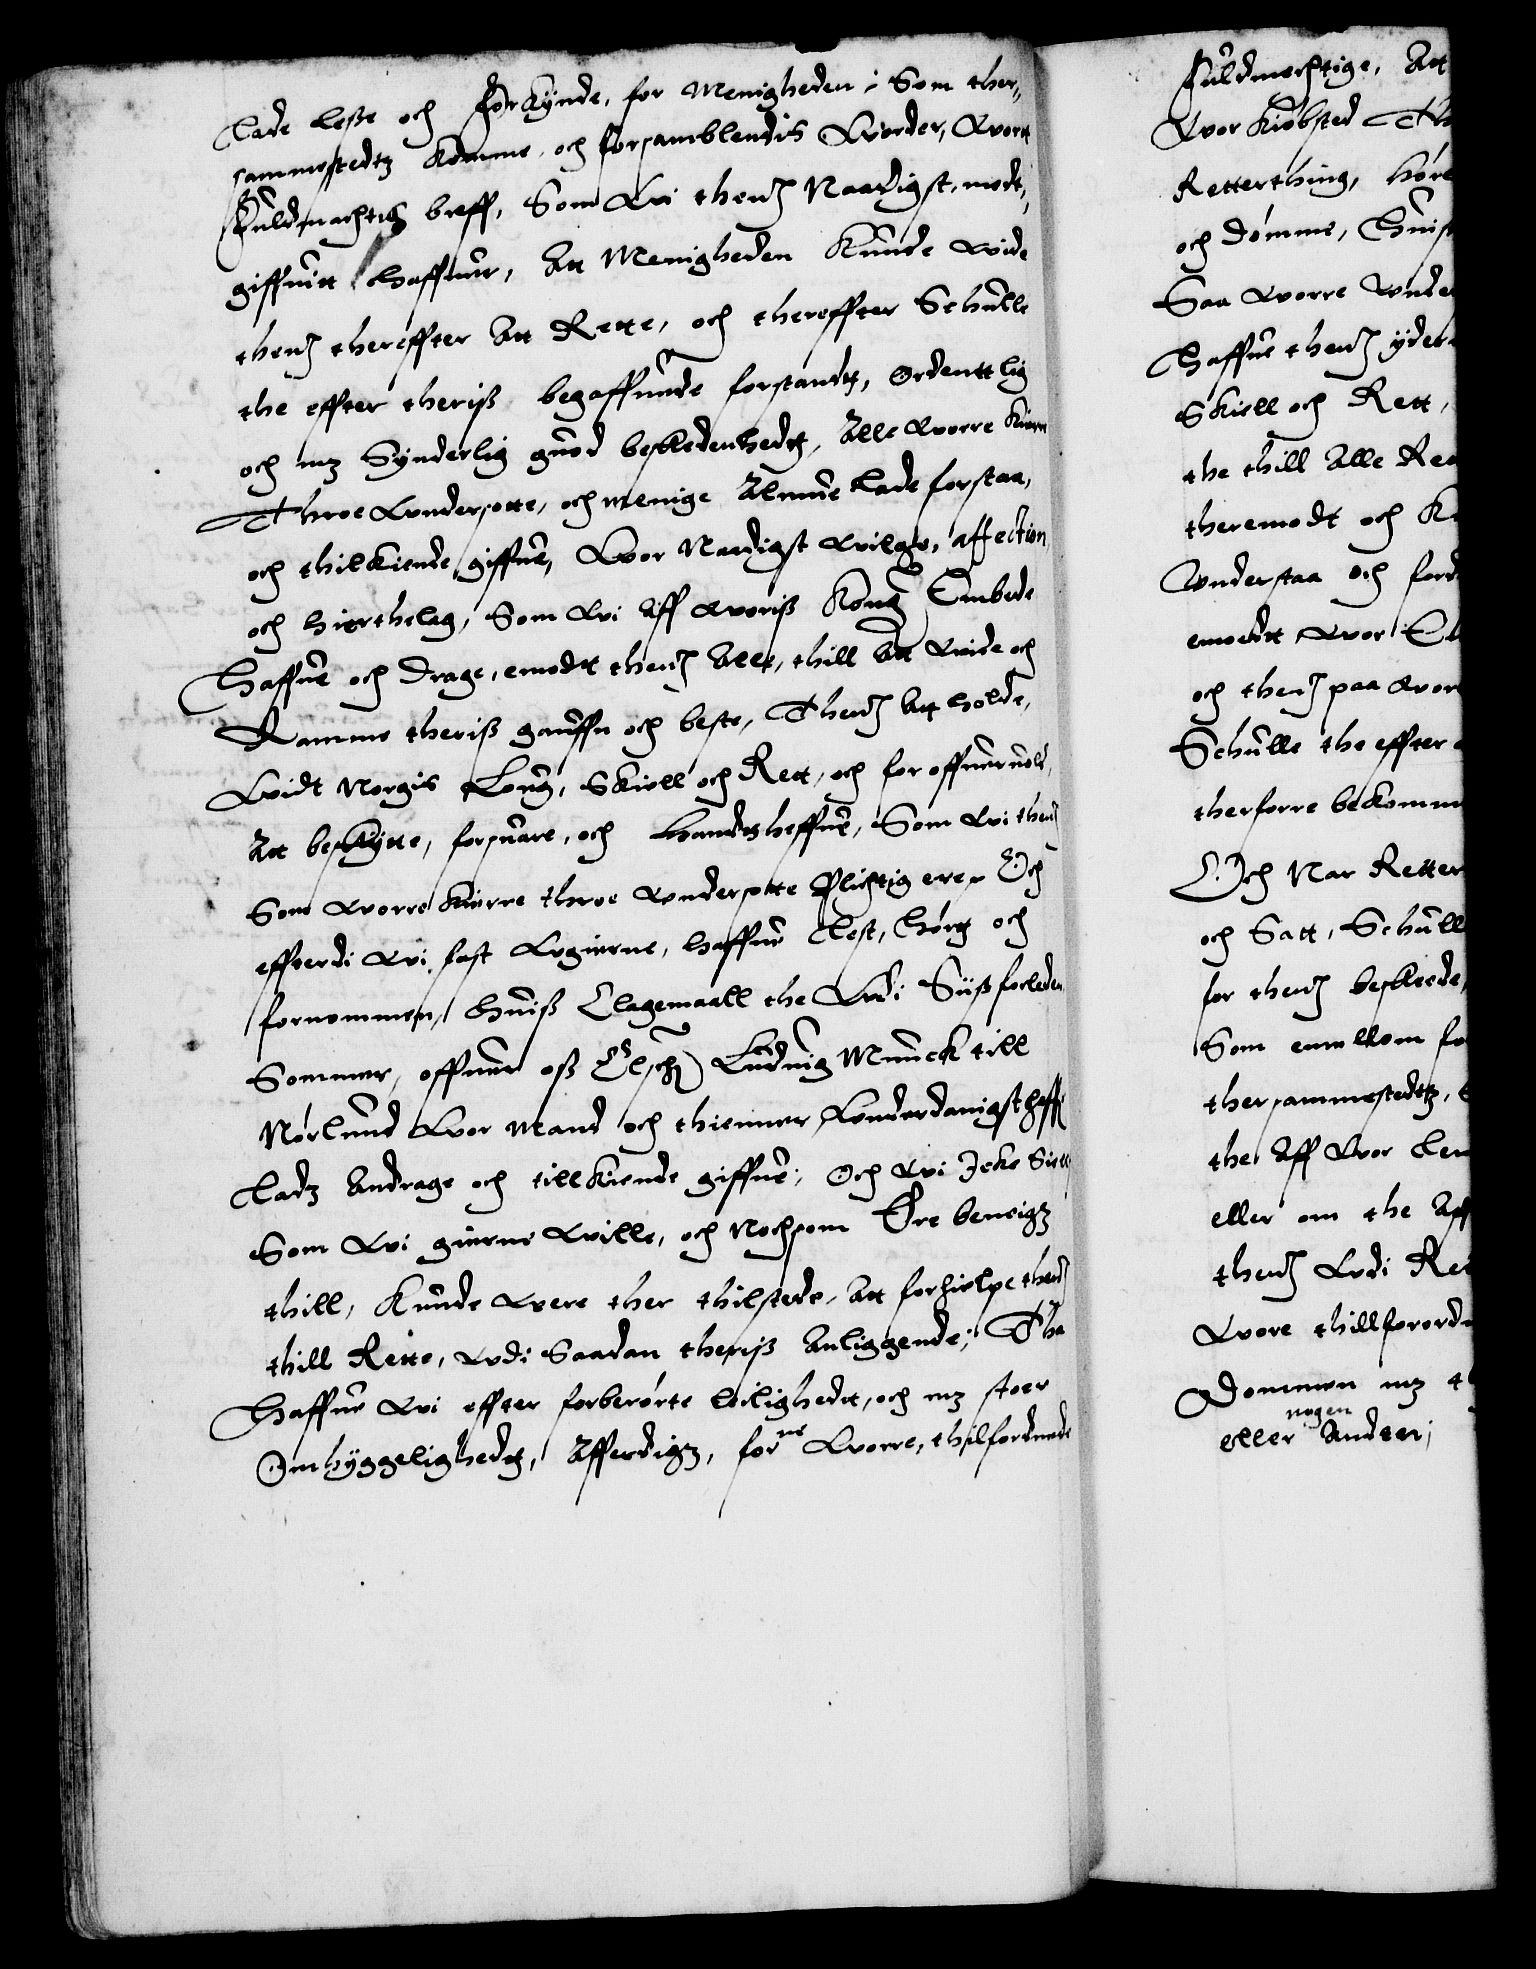 Lade lesse och forkynde, for Menigheden; Som ther,,
sammestedtz komme och forsamblendis Worder, Wortt
fuldmachtig breff, Som Wi thenn Naadigst, medt,,
giffuitt haffuer, Att Menigheden Kunde wide
thenn thereffter Att Rette, och thereffter Schulle
the effter theriss begaffuede forstandt, Ordenttlig
och mz Synderlig guod beskedenhedtz, Alle Worre Kierre
Throe Wndersotte, och menige Almue Lade forstaa,
och thilkiende giffue, Wor Naadigst Wilge, affection
och hierthelag, Som Wi Aff Woriss Kong: Embede
Haffue och drage, emodtt thenn Alle, thill Att wide och
Ramme theriss gauffn och beste, Thenn Att holde,
Widt Norgis Loug, Skiell och Rett, och for offueruold,
Att beskytte, forsuare, och handtheffue, Som Wi thenn
Som Worre Kierre throe Wndersotte Plichtig ere, Och
effterdi Wi fast Wgierne, haffue Lest, hørtz och
fornommen, huiss Clagemaall the Wdi Siist forleden
Sommer, offuer oss Elsche: Luduig Munck till
Nørlund Wor Mand och thienner, Wnderdanigst haffr
Ladz Andrage och tillkiende giffue; Och Wi Icke Siell,
Som Wi gierne Wille, och Nochsom Ere beneigtz
thill, Kunde Were ther thilstede, Att forhielpe thenn
thill Rette, Wdi Saadan theriss Anliggende; Tha
Haffue Wi effter forberørte leilighedt, och mz stoer
Omhyggelighedtz, Afferdigtz, forne Worre, thilfordnede
fuldmechtige, Att
Wor Kiøbsted Th
Retterthing, høre
och dømme, Huis
Saa Worre Wnder
Haffue thenn yder
Skiell och Rett,
the thill Alle Re
theremodt och K
Wnderstaa och ford
emoedtt Wor
och thenn paa Wor
Schulle the effter
therforre bekomm
Och Nar Retter
och Satt, Schull
for thenn beskeede,
Som emellom fo
thersammestedtz,
the Aff Wor
eller om the Aff
thenn Wdi Re
Were thillforord
Dommen mz th
nogen
eller Anden;